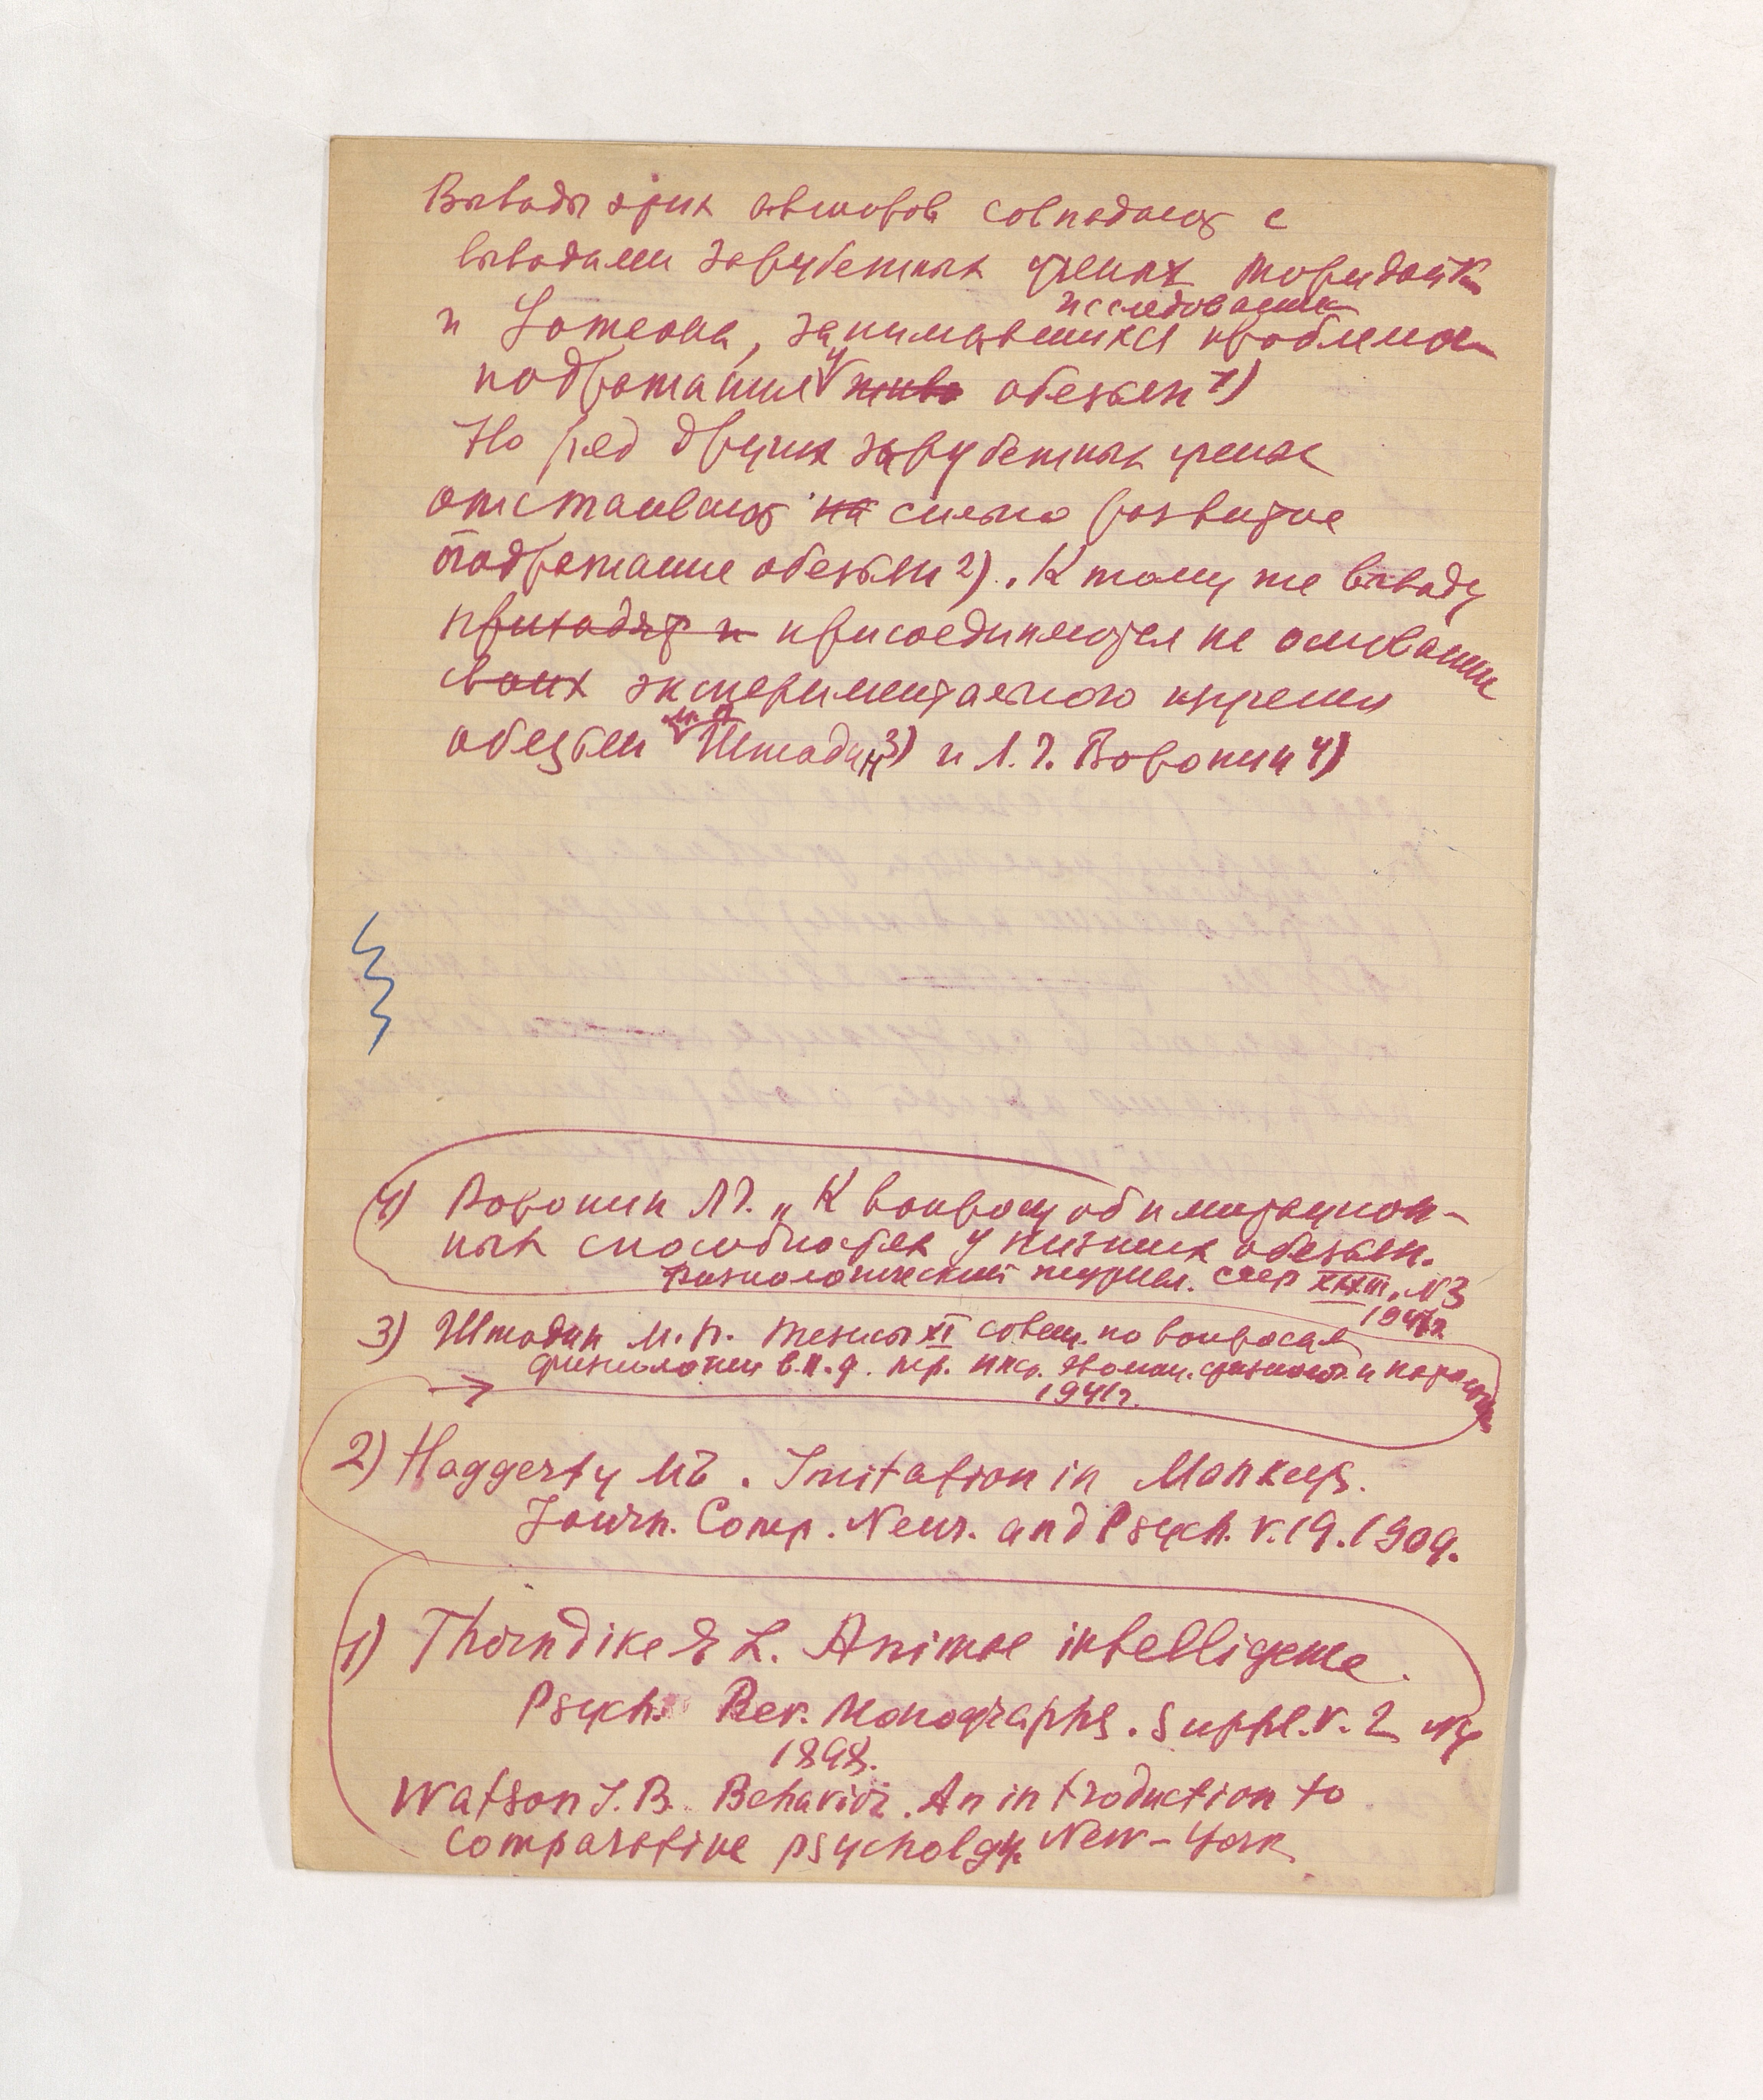 Выводы этих авторов совпадают с
выводами зарубежных ученых Торндайка
исследованием
и Уотсона, занимавшихся проблемой
подражания у обезьян 1)
Но ряд других зарубежных ученых
отстаивают на сильно развитое
подражание обезьян 2). К тому же выводу
приходят и присоединяются на основании
своих экспериментального изучения
обезьян М.П. Штодин 3) и Л.Г. Воронин 4)
4) Воронин Л.Г. „К вопросу об имитацион-
ных способностях у низших обезьян.
Физиологический журнал. СССР XXXIII, №3
1947г.
3) Штодин М.П. Тезисы XI совещ. по вопросам
физиологии в.н.д. 
1941г.
2) Haggerty M.E. Imitation in Monkeys.
Journ. Comp. Neur. and Psych. v.19. 1909.
1) Thorndike E L. Animal intelligence.
Psych. Rev. Monographs. Suppl. v. 2 NY
1898.
Watson J.B. Behavior. An introduction to
comparative psycholgy. New-York